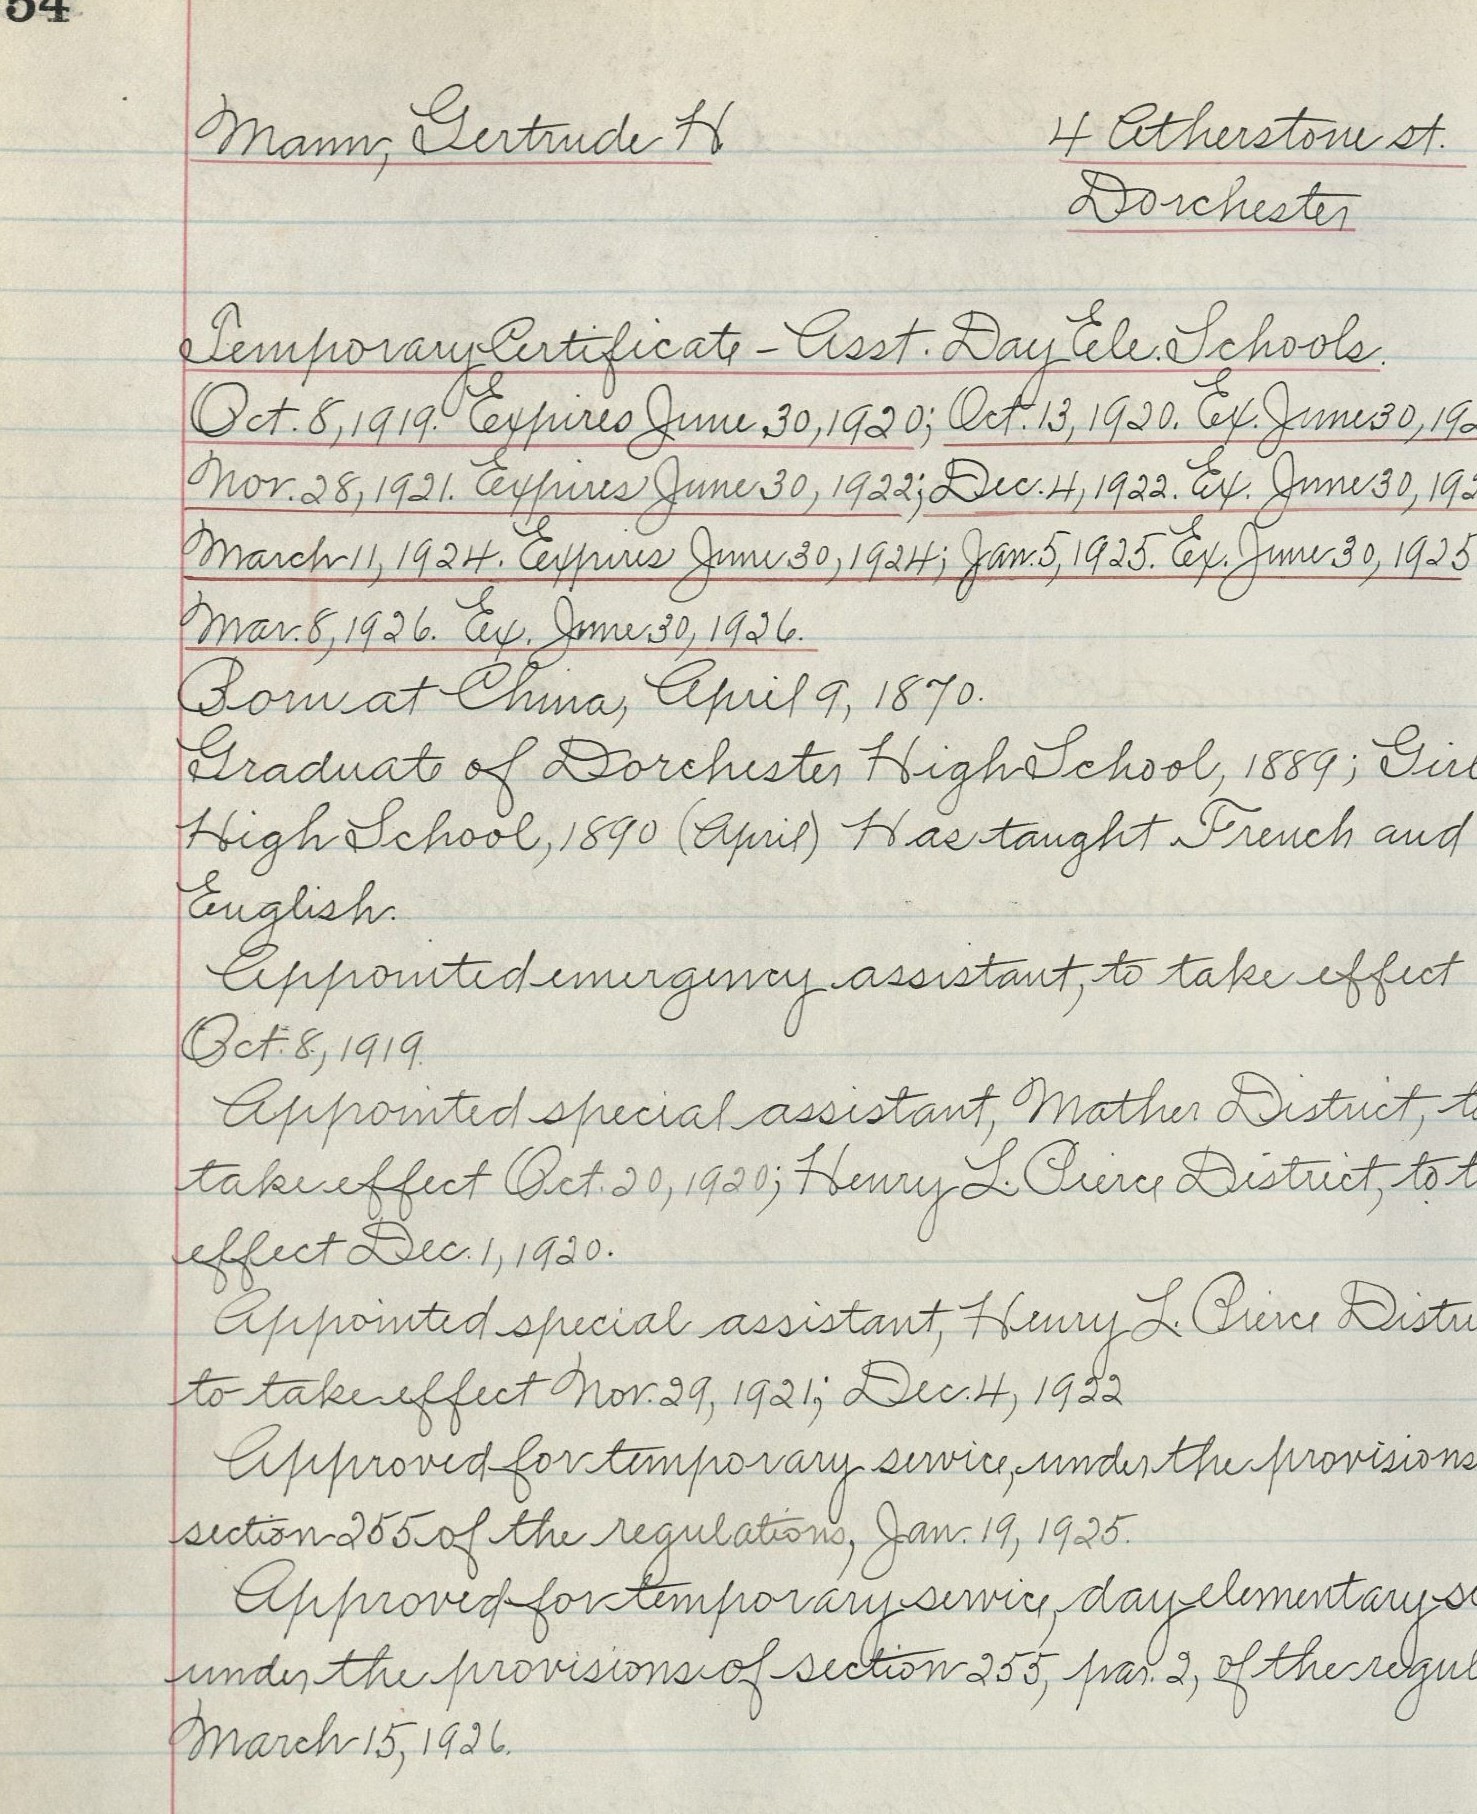 54
Mann, Gertrude H 4 Atherstone st.
Dorchester
Temporary Certificate - Asst. Day Ele. Schools.
Oct. 8, 1919. Expires June 30, 1920; Oct. 13, 1920. Ex. June 30, 192
Nov. 28, 1921. Expires June 30, 1922; Dec. 4, 1922. Ex. June 30, 192
March 11, 1924. Expires June 30, 1924; Jan. 5, 1925. Ex. June 30, 1925
Mar. 8, 1926. Ex. June 30, 1926.
Born at China, April 9, 1870.
Graduate of Dorchester High School, 1889; Girl
High School, 1890 (April) Has taught French and
English.
Appointed emergency assistant, to take effect
Oct. 8, 1919.
Appointed special assistant, Mather District, to
take effect Oct. 20, 1920; Henry L. Pierce District, to t
effect Dec. 1, 1920.
Appointed special assistant, Henry L. Pierce Distri
to take effect Nov. 29, 1921; Dec. 4, 1922
Approved for temporary service, under the provisions
section 255 of the regulations, Jan. 19, 1925.
Approved for temporary service, day elementary sc
under the provisions of section 255, par. 2, of the regul
March 15, 1926.